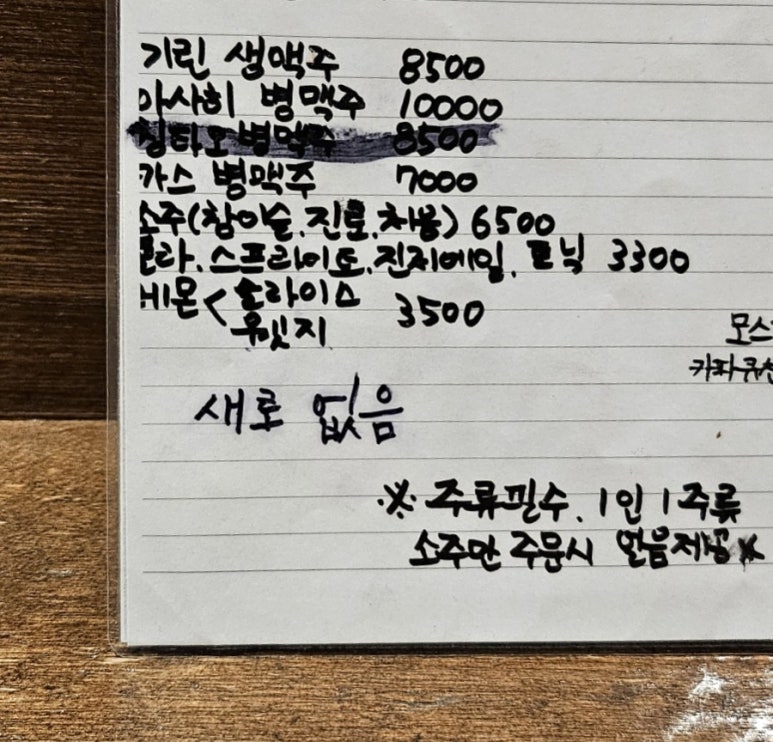 기린 생맥주 8500
아사히 병맥주 10000
칭타오 병맥주 8500
카스 병맥주 7000
소주(참이슬.진로.처음) 6500
콜라.스프라이트.진저에일.토닉 3300
레몬< 슬라이스 3500
웻지
모스
새로 없음
※ 주류필수. 1인 1주류
소주만 주문시 얼음제공※